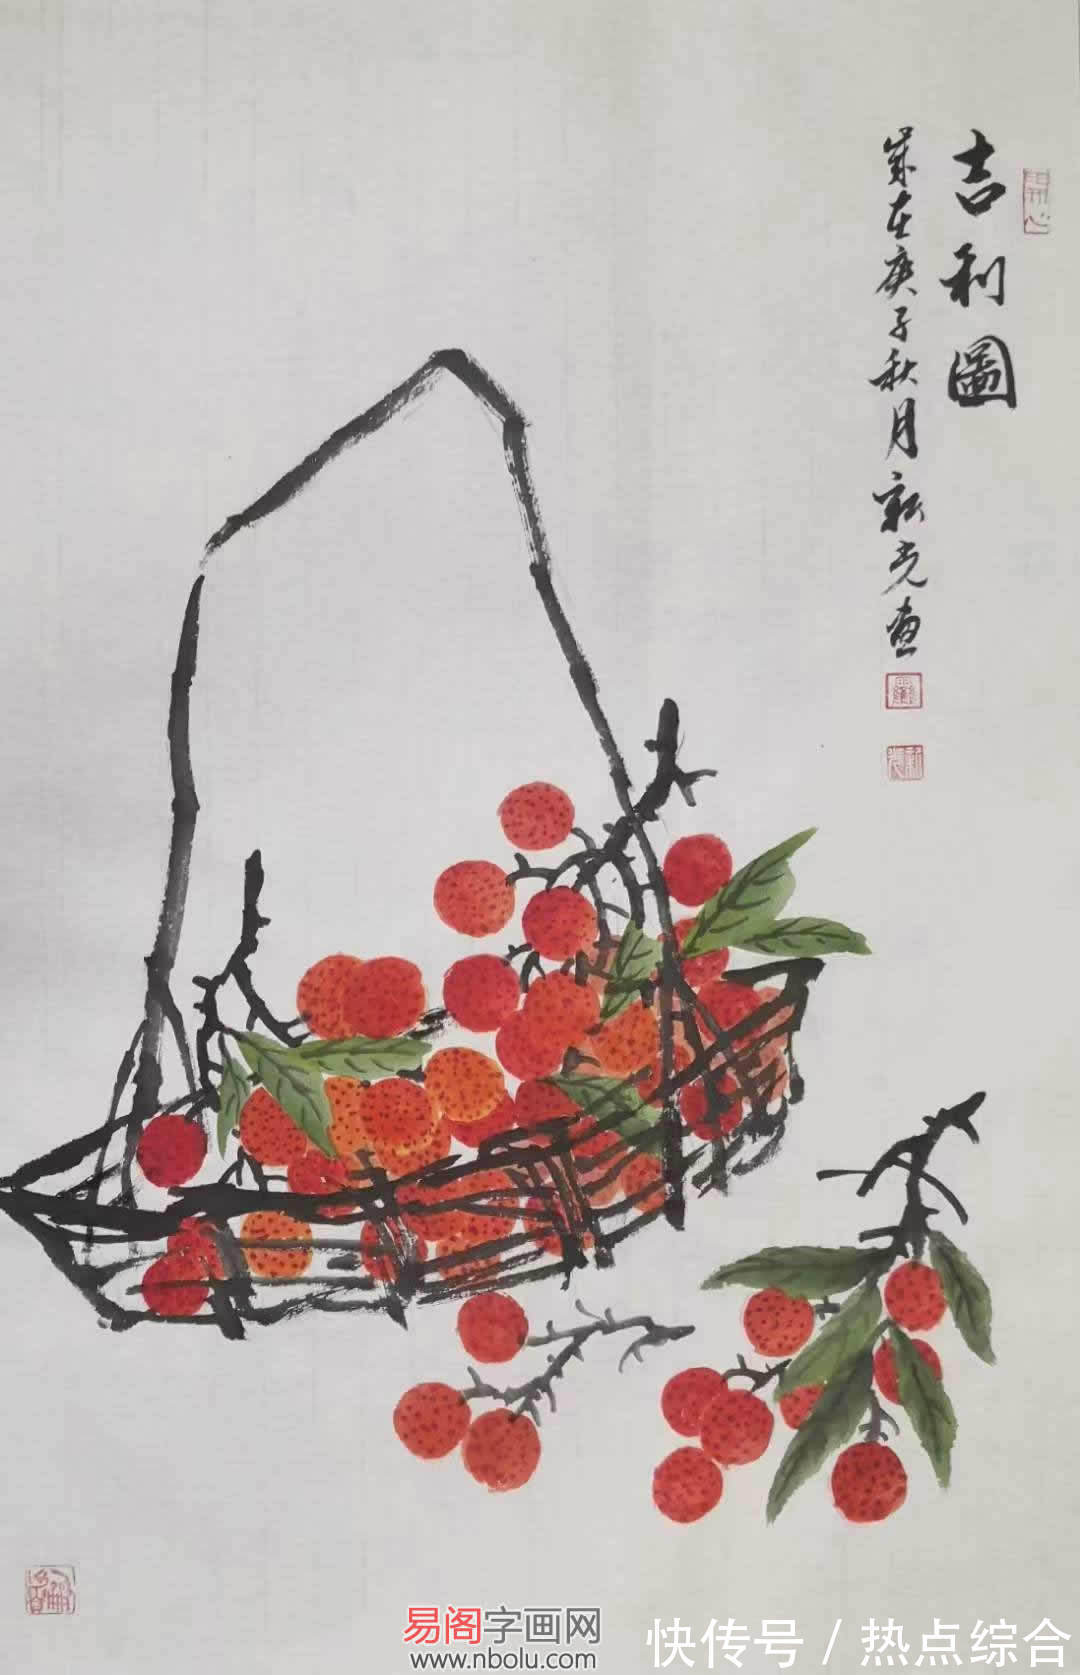 吉利圖
歲在庚子秋月新光画
开心
易阁字画网
www.nbolu.com
快传号 / 热点综合